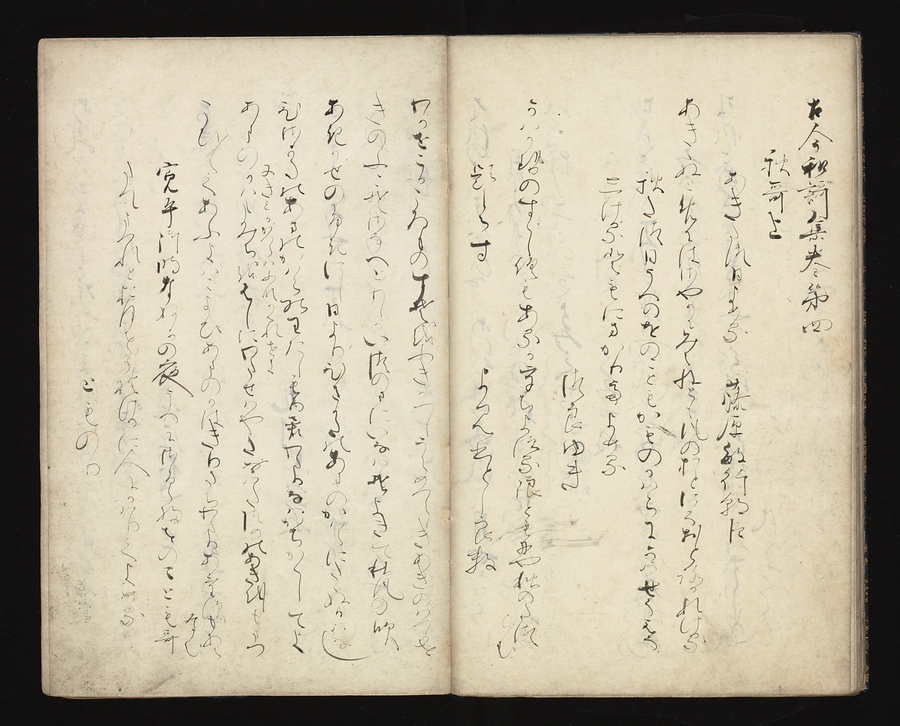 古今和謌集巻第四
秋哥上
あきたつ日よめる　藤原敏行朝臣
あききぬとめにはさやかにみえねともかせのおとにそおとろかれぬる
秋たつ日うへのをのこともかものかはらにかはせうえう
しけるともにまかりてよめる
つらゆき
かは風のすゝしくもあるかうちよする浪とともにや秋はたつ
らむ
題しらす　よみ人しらす
わかせこかころものすそをふきかへしうらめつらしきあきのはつかせ
きのふこそさなへとりしかいつのまにいなはそよきて秋風の吹
あきかせのふきにし日よりひさかたのあまのかはらにたゝぬ日はなし
ひさかたのあまのかはらのわたしもり君わたりなはかちかくしてよ
あまのかはもみちをはしにわたせはやたなはたつめのあきをしもまつ
こひ〳〵てあふよはこよひあまのかはきりたちわたりあけすもあら
なむ
寛平御時なぬかの夜うへにさふらふをのことも哥
たてまつれとおほせられける時に人にかはりてよめる
とものり